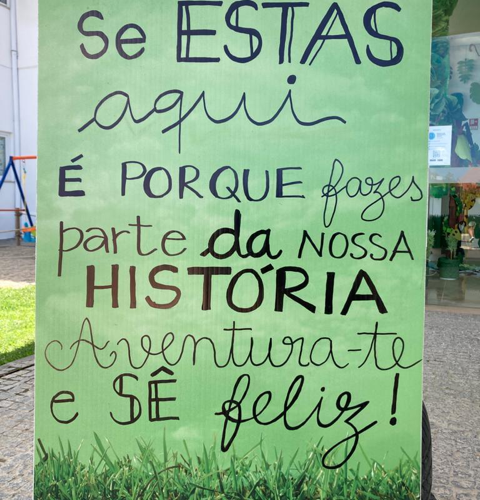 Se ESTAS
aqui
É PORQUE fazes
parte da NOSSA
HISTÓRIA
Aventura-te
e SÊ feliz!